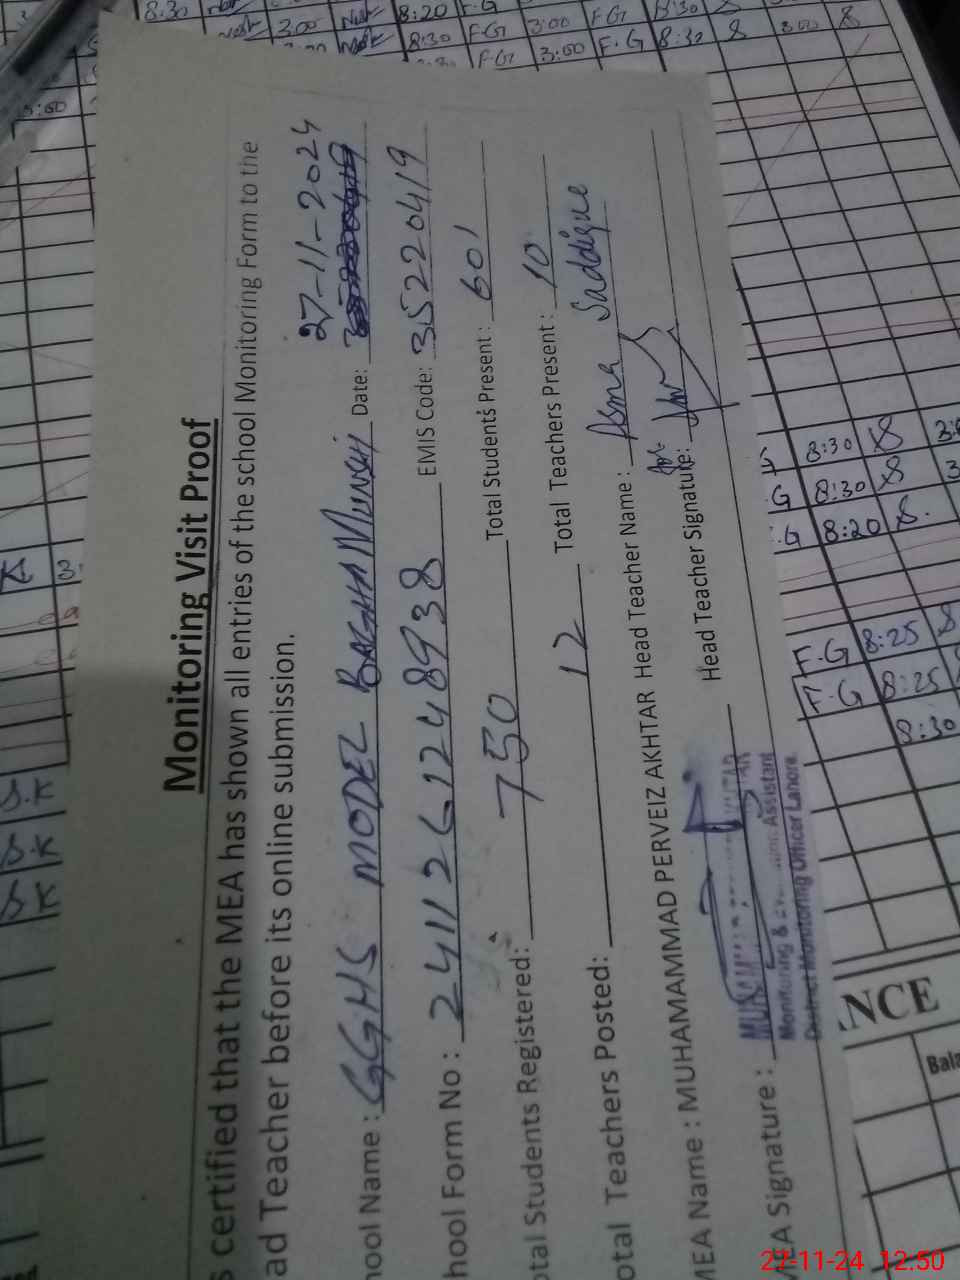 Monitoring Visit Proof
s certified that the MEA has shown all entries of the school Monitoring Form to the
ad Teacher before its online submission.
27-11-2024
hool Name : GGHS MODEL BAGHH MUNSHI Date:
hool Form No : 241126124 8938 EMIS Code: 35220419
otal Students Registered: 750 Total Students Present : 601
otal Teachers Posted: 12 Total Teachers Present : 10
MEA Name : MUHAMAMMAD PERVEIZ AKHTAR Head Teacher Name : Asma Saddique
MEA Signature : Head Teacher Signature:
Monitoring & Assistant
District Monitoring Officer Lahore.
8:30 8:20 F.G 3:00 F.G 8:30
3:00 8:30 F.G 3:00 F.G 8:30 3:00
8:30
G 8:30
.G 8:20
F.G 8:25
F.G 8:25
8:30
S.K
S.K
S.K
NCE
Bala
27-11-24 12:50